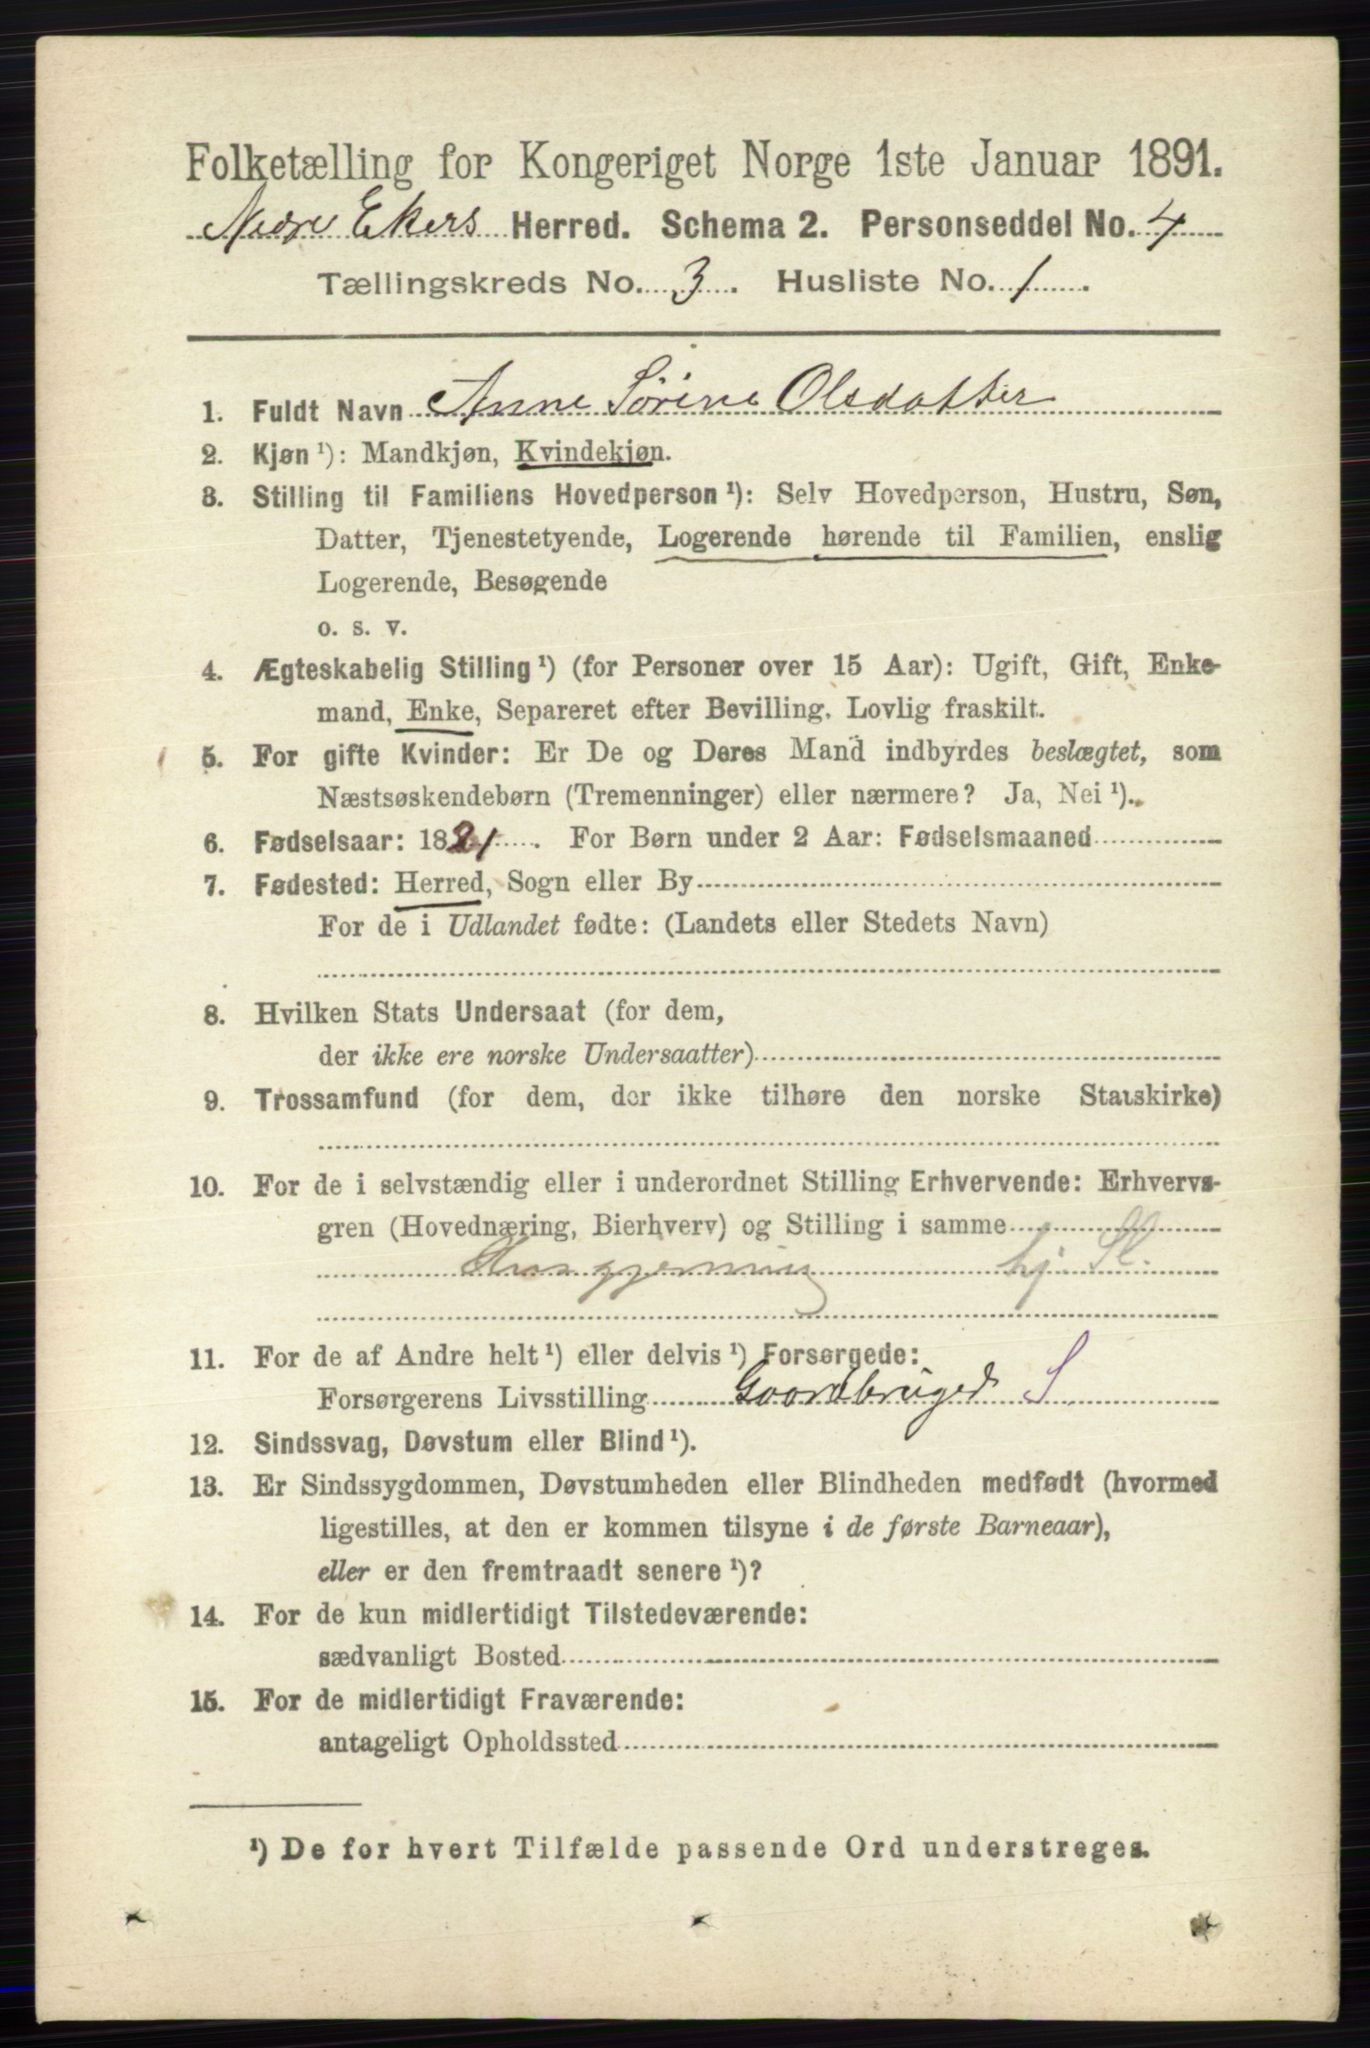 Folketælling for Kongeriget Norge 1ste Januar 1891.
Nedre Ekers Herred. Schema 2. Personseddel No. 4
Tællingskreds No. 3. Husliste No. 1.
1. Fuldt Navn Anne Sörine Olsdatter
2. Kjøn ¹): Mandkjøn, Kvindekjøn.
3. Stilling til Familiens Hovedperson ¹): Selv Hovedperson, Hustru, Søn,
Datter, Tjenestetyende, Logerende hørende til Familien, enslig
Logerende, Besøgende
o. s. v.
4. Ægteskabelig Stilling ¹) (for Personer over 15 Aar): Ugift, Gift, Enke-
mand, Enke, Separeret efter Bevilling. Lovlig fraskilt.
5. For gifte Kvinder: Er De og Deres Mand indbyrdes beslægtet, som
Næstsøskendebørn (Tremenninger) eller nærmere? Ja, Nei ¹).
6. Fødselsaar: 1821. For Børn under 2 Aar: Fødselsmaaned
7. Fødested: Herred, Sogn eller By
For de i Udlandet fødte: (Landets eller Stedets Navn)
8. Hvilken Stats Undersaat (for dem,
der ikke ere norske Undersaatter)
9. Trossamfund (for dem, der ikke tilhøre den norske Statskirke)
10. For de i selvstændig eller i underordnet Stilling Erhvervende: Erhvervs-
gren (Hovednæring, Bierhverv) og Stilling i samme
Husgjerning hj. Sl.
11. For de af Andre helt ¹) eller delvis ¹) Forsørgede:
Forsørgerens Livsstilling Gaardbruger S
12. Sindssvag, Døvstum eller Blind ¹).
13. Er Sindssygdommen, Døvstumheden eller Blindheden medfødt (hvormed
ligestilles, at den er kommen tilsyne i de første Barneaar),
eller er den fremtraadt senere ¹)?
14. For de kun midlertidigt Tilstedeværende:
sædvanligt Bosted
15. For de midlertidigt Fraværende:
antageligt Opholdssted
¹) De for hvert Tilfælde passende Ord understreges.